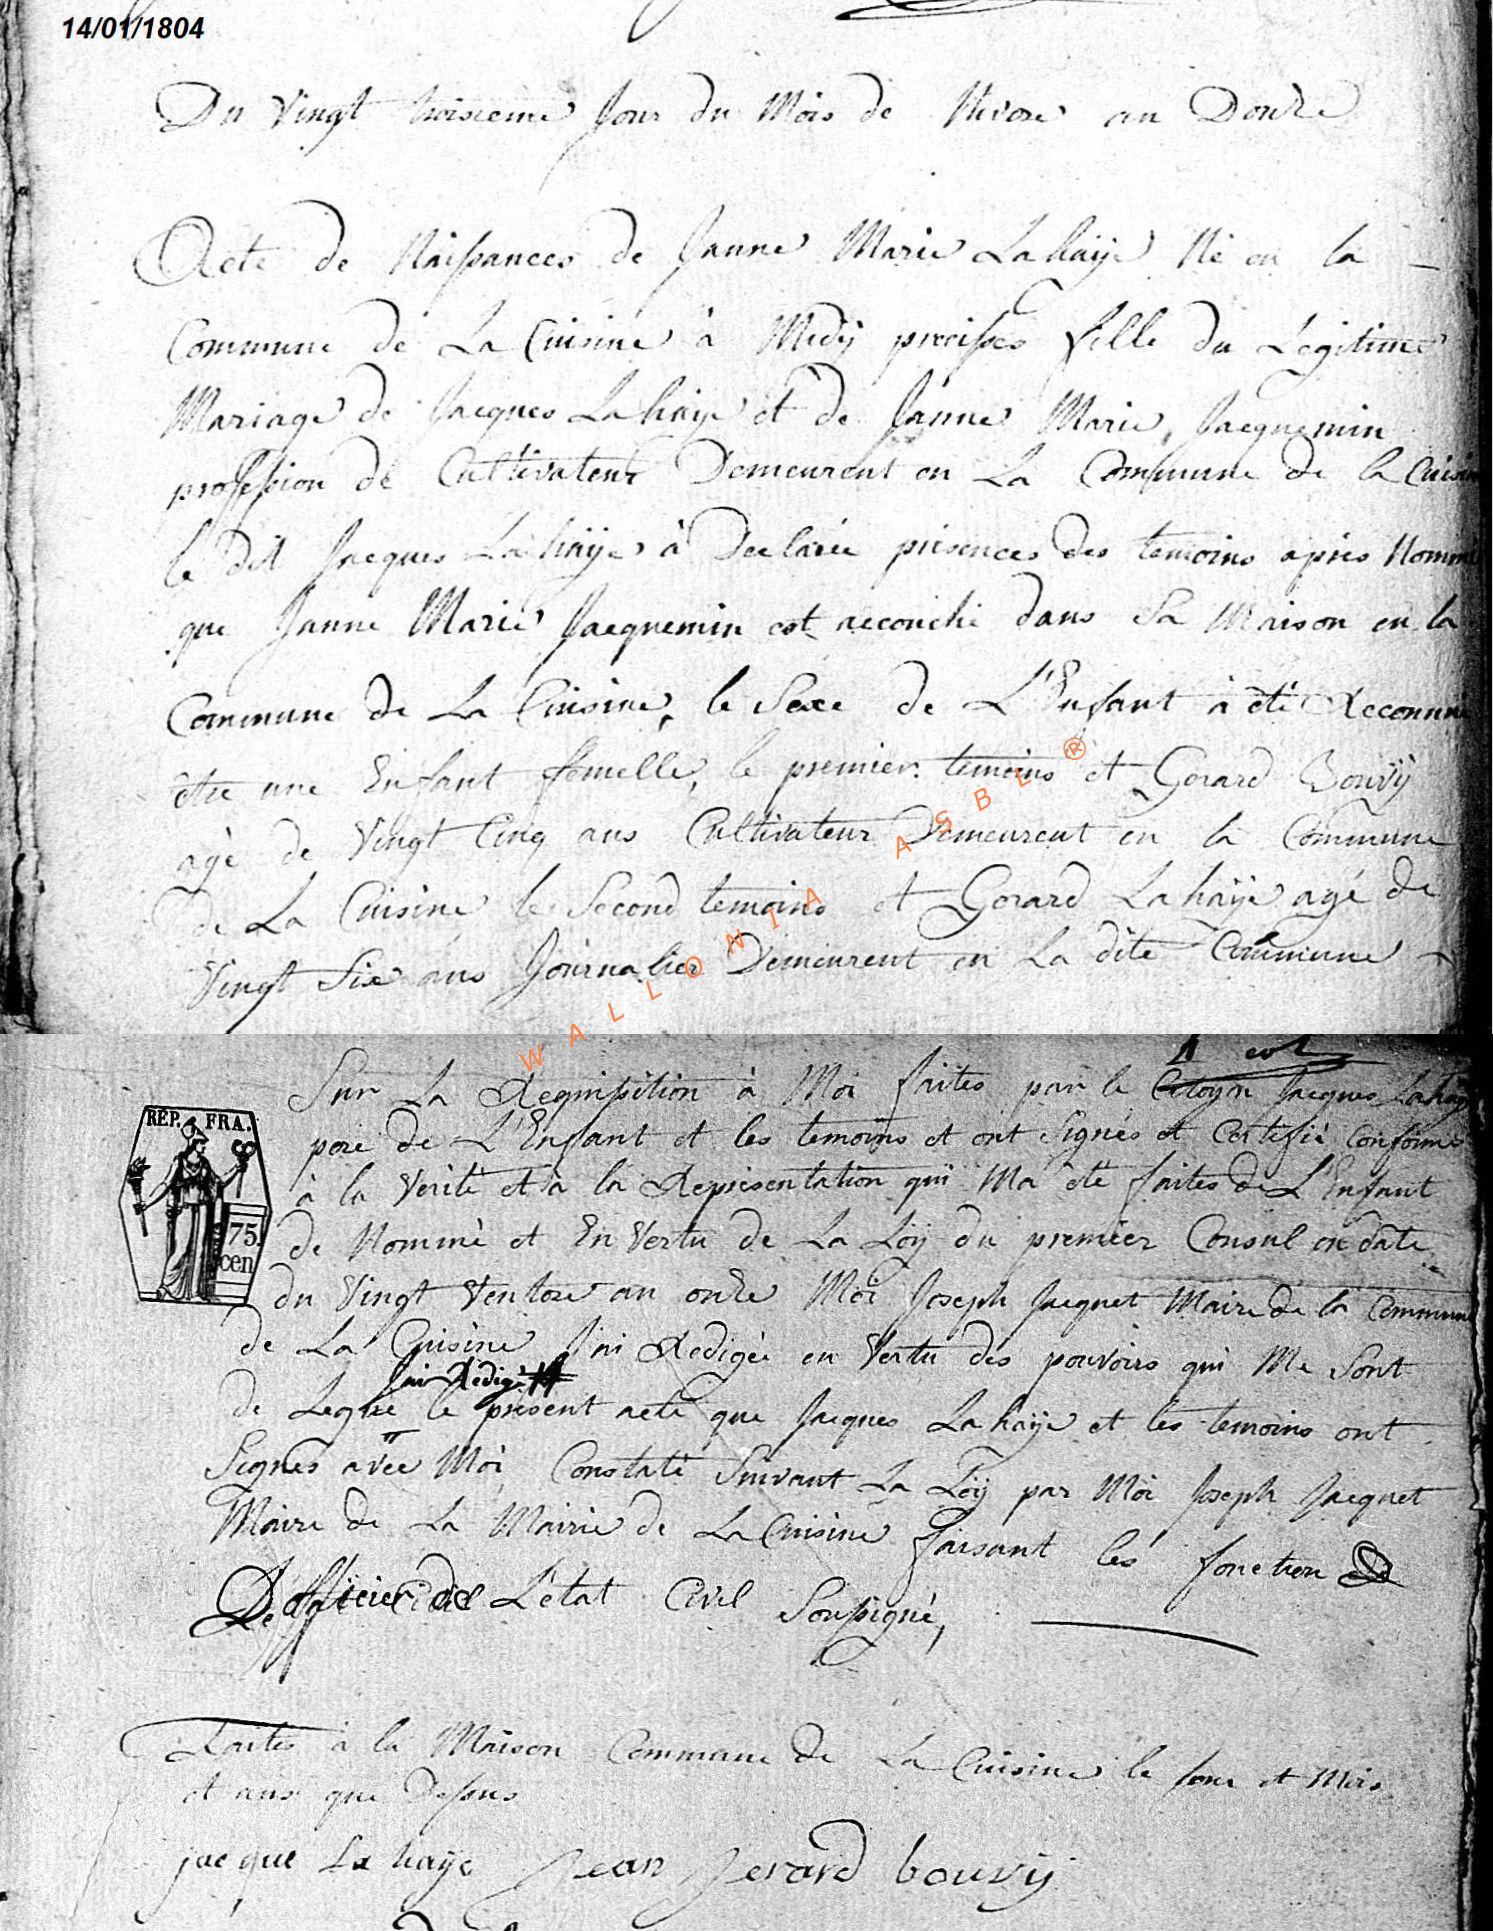 14/01/1804
Du Vingt troisieme Jour du Mois de Nivose an Douze
Acte de Naissances de Janne Marie Lahaÿe Né en la
Commune de La Cuisine à Midÿ precises fille du Legitime
Mariage de Jacques Lahaÿe et de Janne Marie Jacquemin
profession de Cultivateur Demeurent en La Commune de la Cuisine
le dit Jacques Lahaÿe à Declarée présences des temoins aprés Nommé
que Janne Marie Jacquemin est accouché dans Sa Maison en la
Commune de La Cuisine, le Sexe de L'Enfant à été Reconnue
être une Enfant femelle, le premier temoins et Gerard Bouvÿ
agé de Vingt Cinq ans Cultivateur Demeurent en la Commune
de La Cuisine le Second temoins et Gerard Lahaÿe agé de
Vingt Six ans Journalier Demeurent en La dite Commune
WALLONIA ASBL ®
Sur La Requisition à Moi faites par le Citoyen Jacques Lahaÿe
pere de L'Enfant et les temoins et ont Signés et Certifié Conforme
à la Verité et à la Representation qui Ma été faites de L'Enfant
REP. FRA.
75.
cen
de Nommé et En Vertu de La Loÿ du premier Consul en date
du Vingt Ventose an onze Moi Joseph Jacquet Maire de la Commune
de La Cuisine J'ai Redigée en Vertu des pouvoirs qui Me Sont
J'ai Redigé
de Legué le présent acte que Jacques Lahaÿe et les temoins ont
Signés avec Moi Constaté Suivant La Loÿ par Moi Joseph Jacquet
Maire de La Mairie de La Cuisine faisant les fonction de
De officier de L'état Civil Soussigné,
Faites à la Maison Commune de La Cuisine le Jour et Mois
et ans que Dessus
jacque La haÿe Jean Gerard bouvÿ